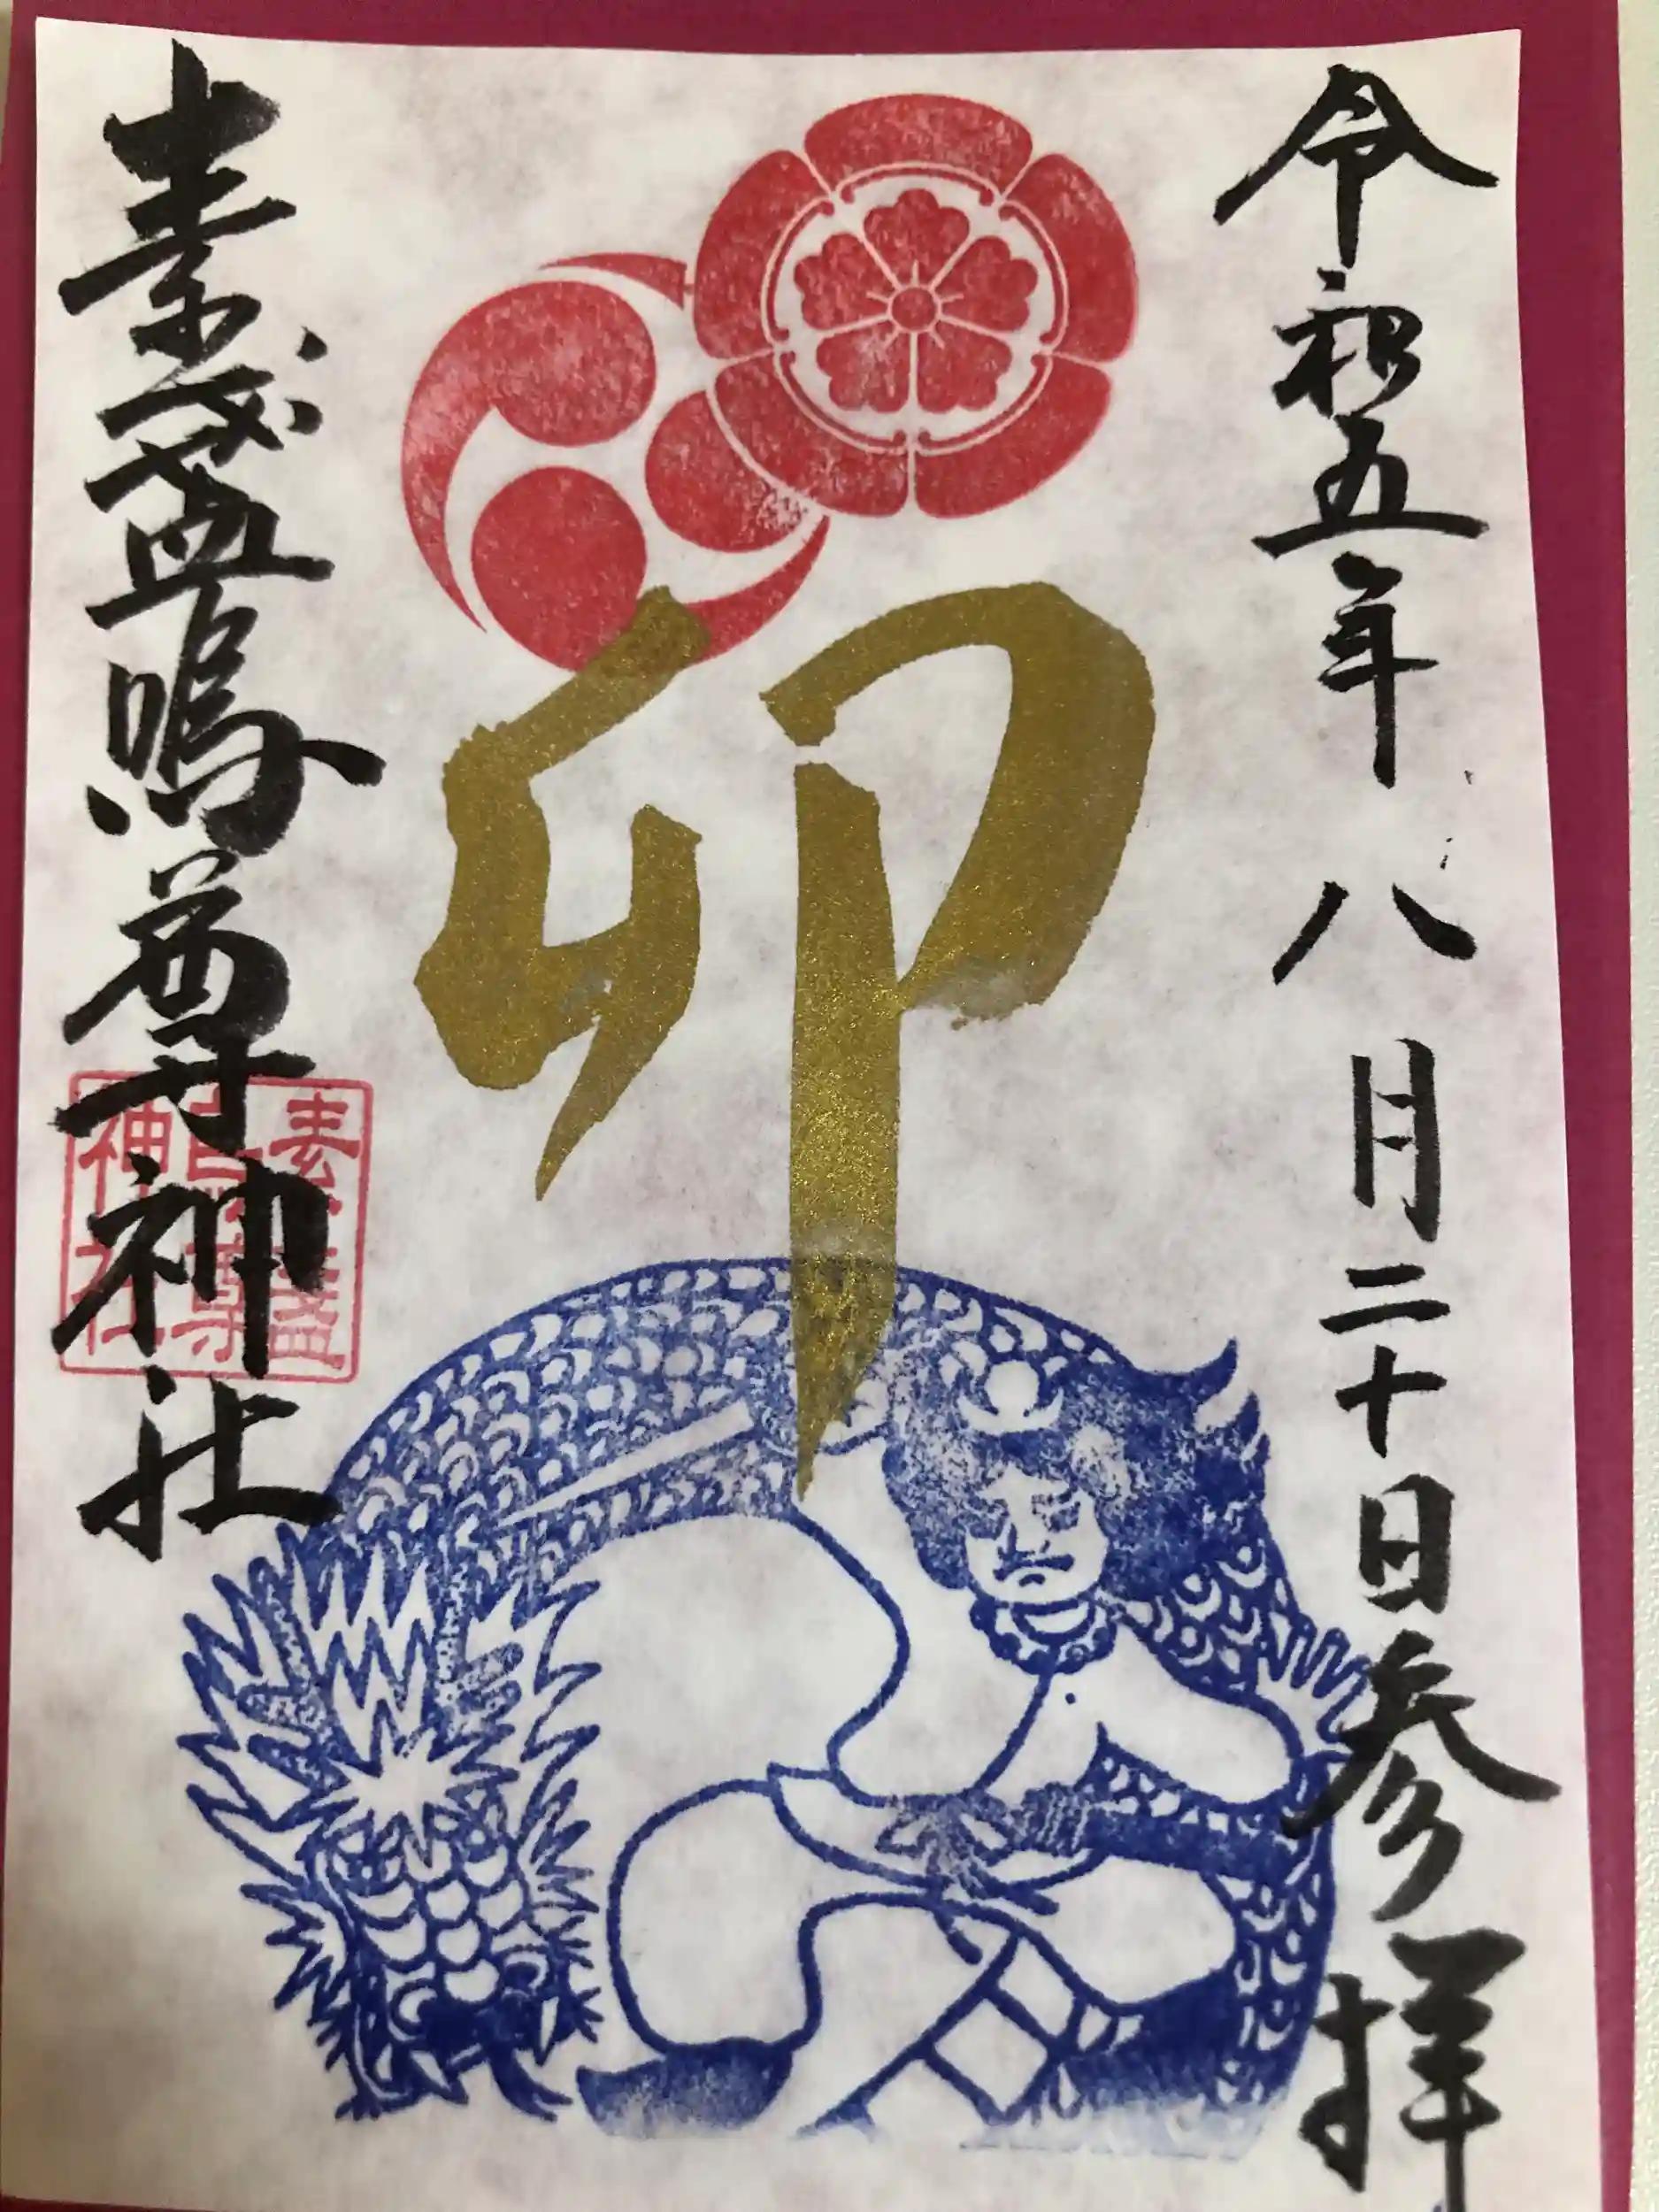 令和五年八月二十日参拝
卯
素盞嗚尊神社
素盞
嗚尊
神社